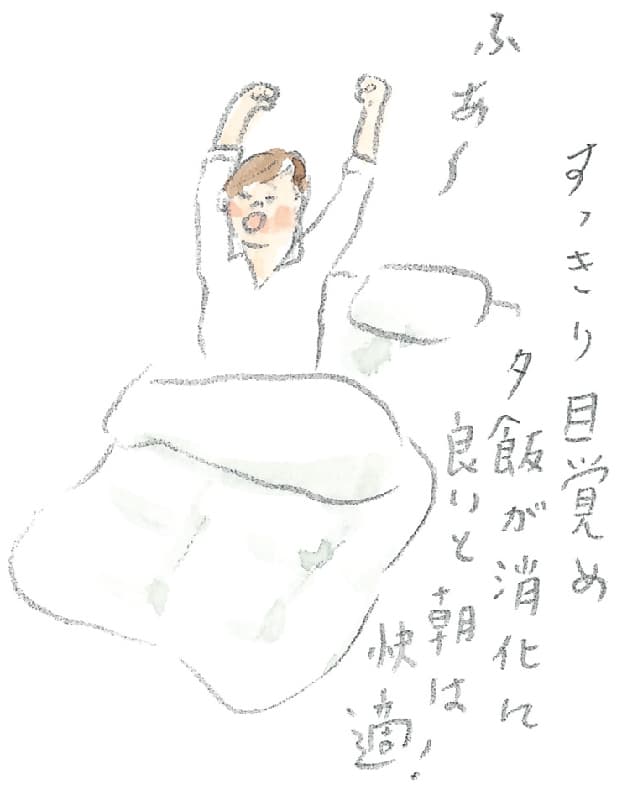 すっきり目覚め
夕飯が消化に
良いと朝は
快適!
ふあ〜